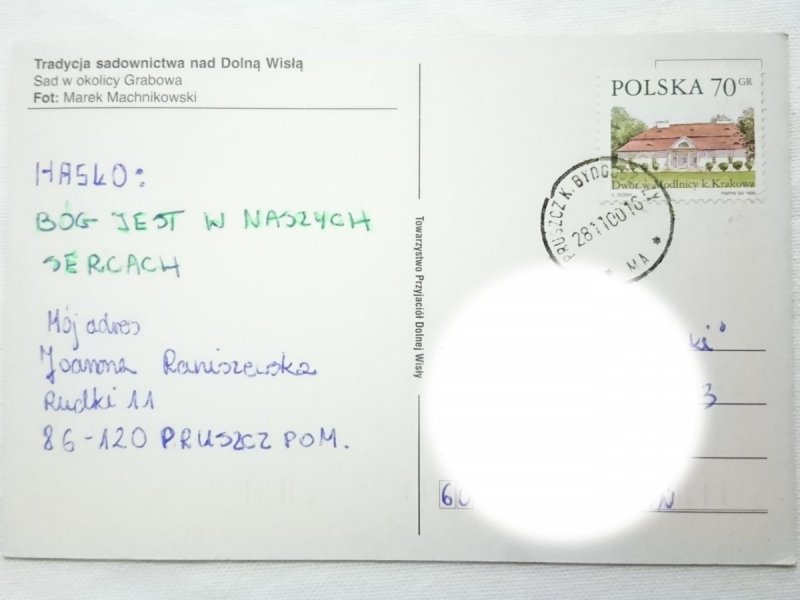 Tradycja sadownictwa nad Dolną Wisłą
Sad w okolicy Grabowa
Fot: Marek Machnikowski
HASŁO:
BÓG JEST W NASZYCH
SERCACH
Mój adres
Joanna Raniszewska
Rudki 11
86-120 PRUSZCZ POM.
Towarzystwo Przyjaciół Dolnej Wisły
POLSKA 70 GR
Dwór w Modlnicy k. Krakowa
PRUSZCZ K. BYDG
281100
MA
ki"
3
6
N